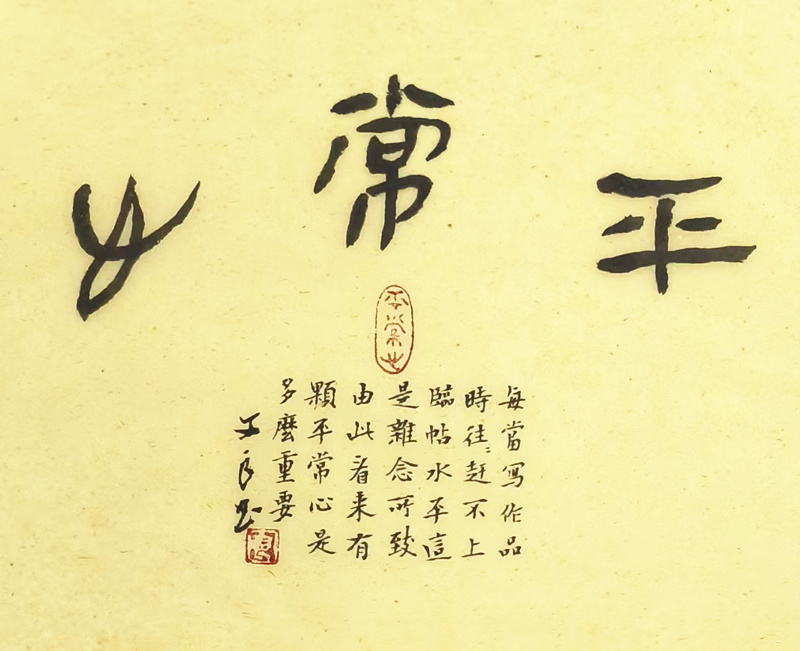 平常心
平常心
每當写作品
時往〻赶不上
臨帖水平這
是雜念所致
由此看来有
顆平常心是
多麼重要
文良书